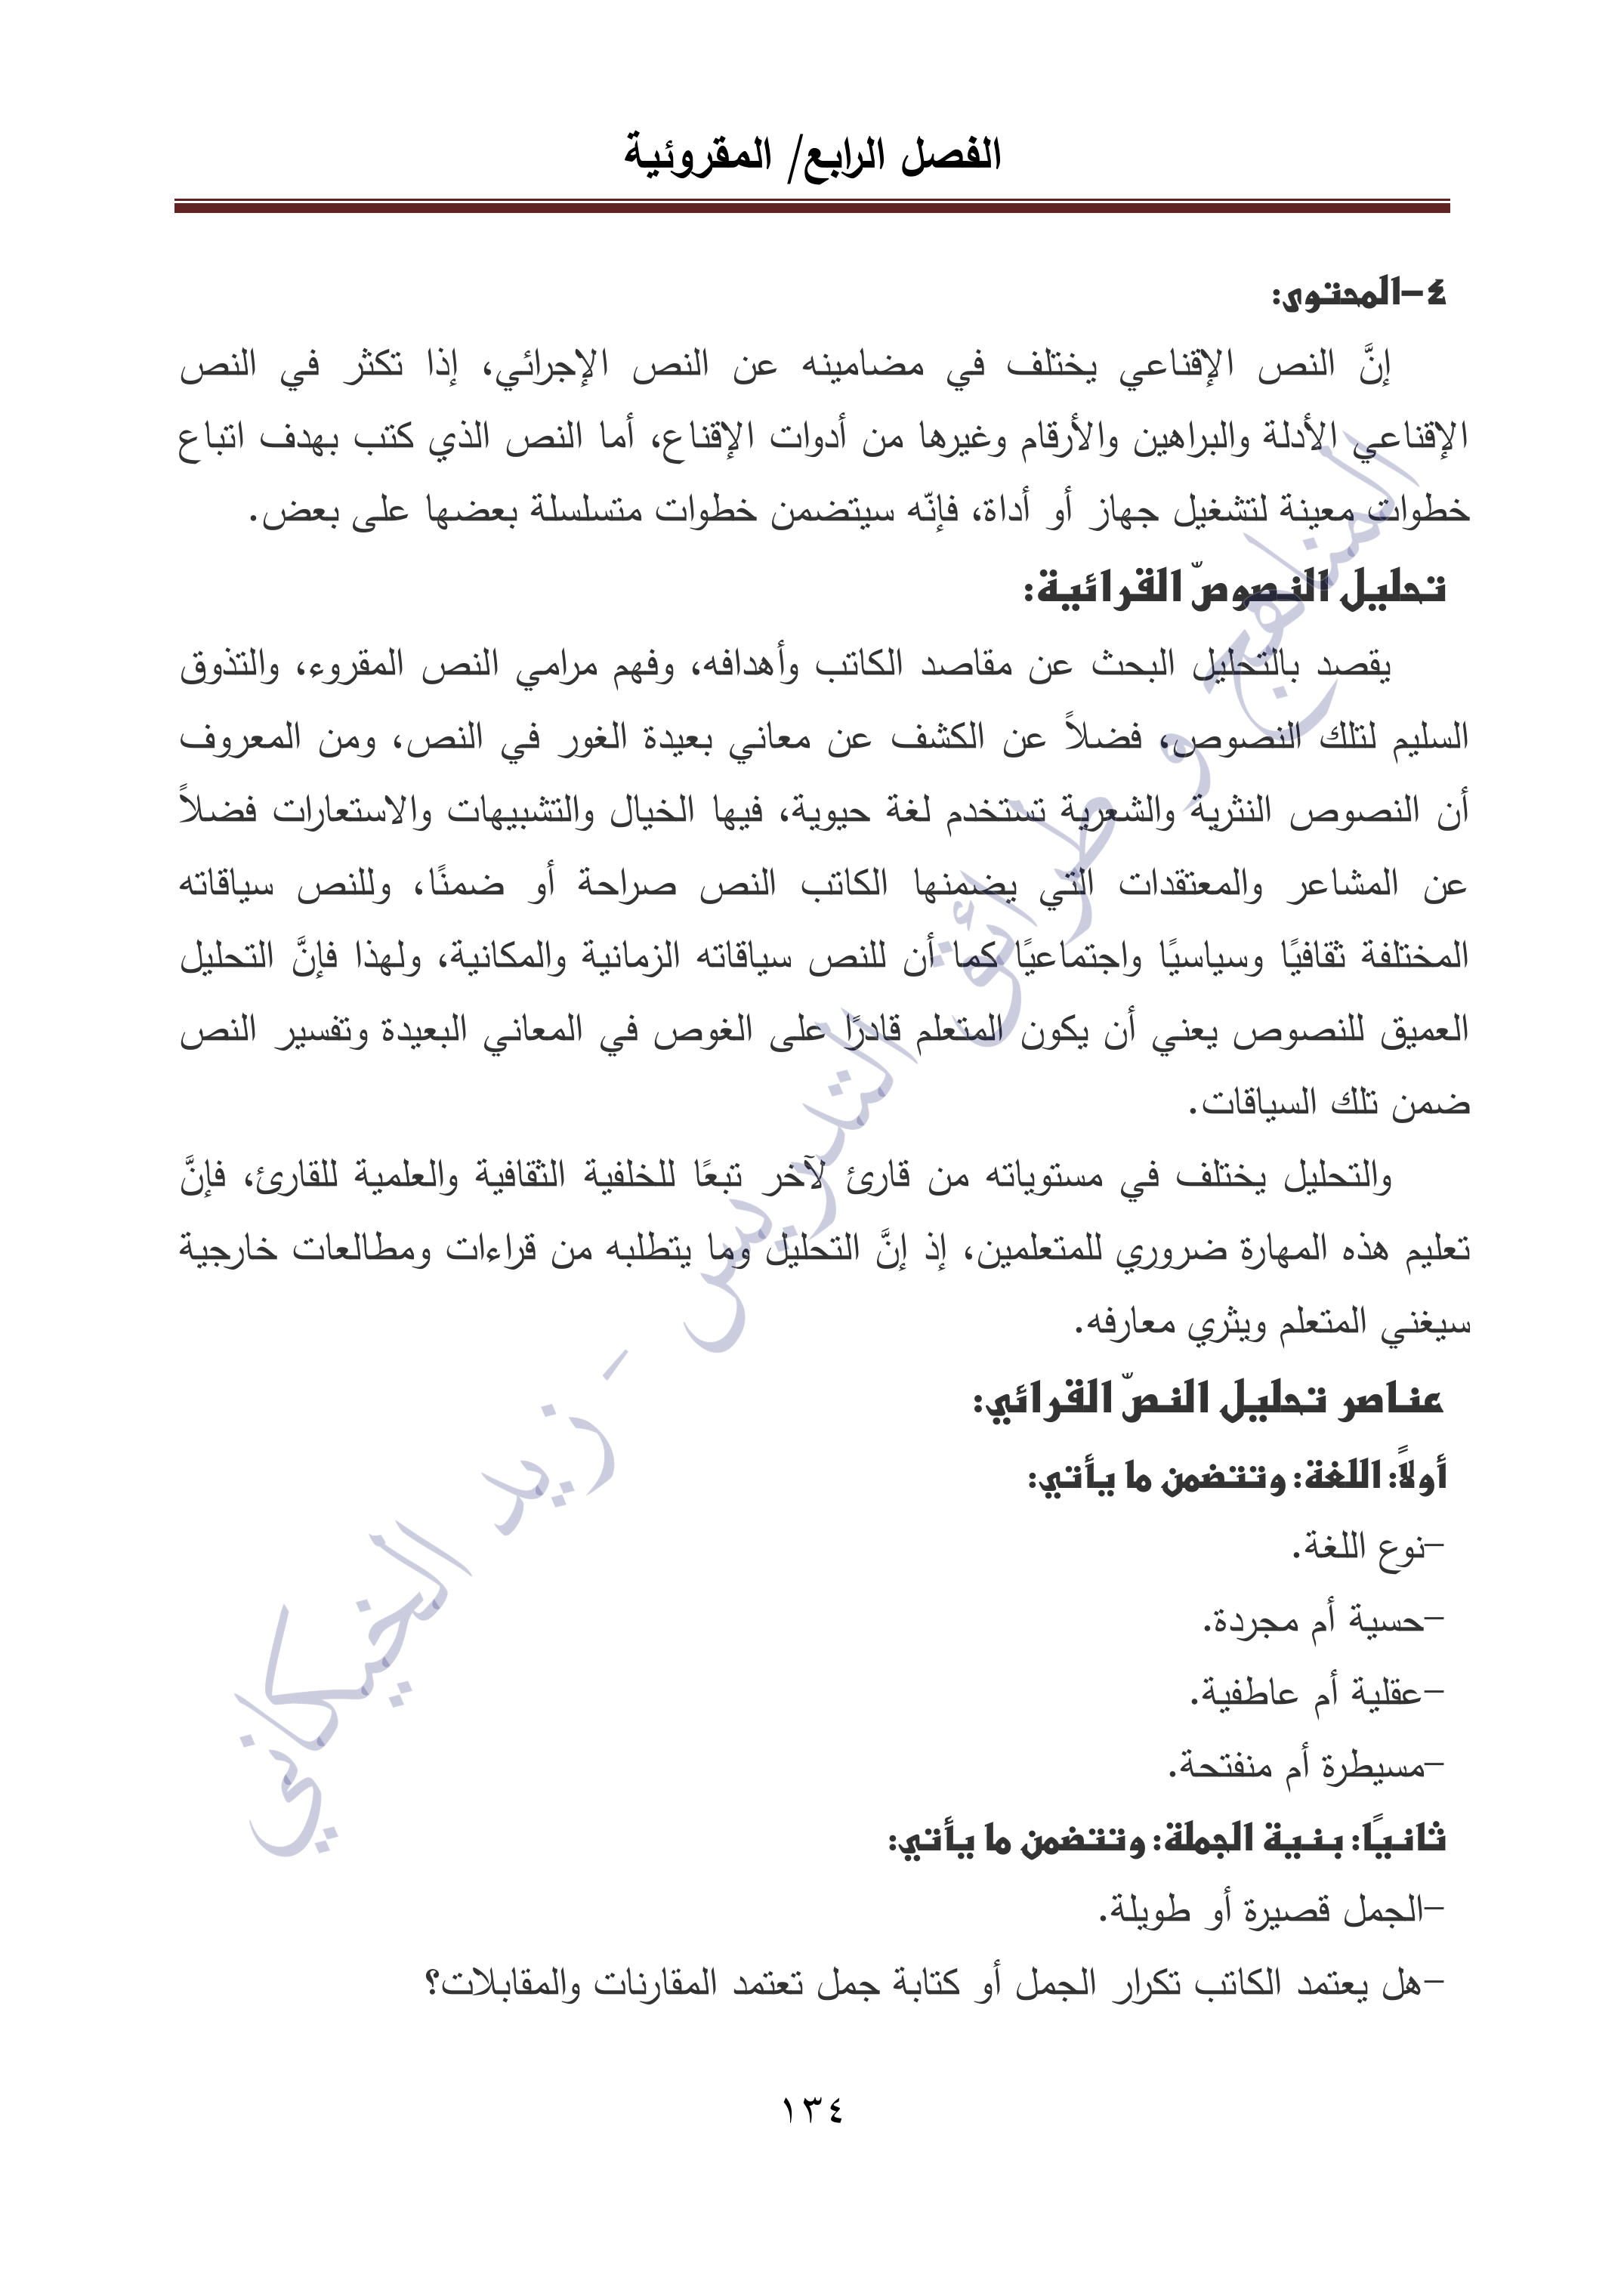 الفصل الرابع/ المقروئية
٤-المحتوى:
إنَّ النص الإقناعي يختلف في مضامينه عن النص الإجرائي، إذا تكثر في النص
الإقناعي الأدلة والبراهين والأرقام وغيرها من أدوات الإقناع، أما النص الذي كتب بهدف اتباع
خطوات معينة لتشغيل جهاز أو أداة، فإنّه سيتضمن خطوات متسلسلة بعضها على بعض.
تحليل النصوصّ القرائية:
يقصد بالتحليل البحث عن مقاصد الكاتب وأهدافه، وفهم مرامي النص المقروء، والتذوق
السليم لتلك النصوص، فضلاً عن الكشف عن معاني بعيدة الغور في النص، ومن المعروف
أن النصوص النثرية والشعرية تستخدم لغة حيوية، فيها الخيال والتشبيهات والاستعارات فضلاً
عن المشاعر والمعتقدات التي يضمنها الكاتب النص صراحة أو ضمنًا، وللنص سياقاته
المختلفة ثقافيًا وسياسيًا واجتماعيًا كما أن للنص سياقاته الزمانية والمكانية، ولهذا فإنَّ التحليل
العميق للنصوص يعني أن يكون المتعلم قادرًا على الغوص في المعاني البعيدة وتفسير النص
ضمن تلك السياقات.
والتحليل يختلف في مستوياته من قارئ لآخر تبعًا للخلفية الثقافية والعلمية للقارئ، فإنَّ
تعليم هذه المهارة ضروري للمتعلمين، إذ إنَّ التحليل وما يتطلبه من قراءات ومطالعات خارجية
سيغني المتعلم ويثري معارفه.
عناصر تحليل النصّ القرائي:
أولاً: اللغة: وتتضمن ما يأتي:
-نوع اللغة.
-حسية أم مجردة.
-عقلية أم عاطفية.
-مسيطرة أم منفتحة.
ثانيًا: بنية الجملة: وتتضمن ما يأتي:
-الجمل قصيرة أو طويلة.
-هل يعتمد الكاتب تكرار الجمل أو كتابة جمل تعتمد المقارنات والمقابلات؟
١٣٤
المناهج و طرائق التدريس - زيد الخيكاني